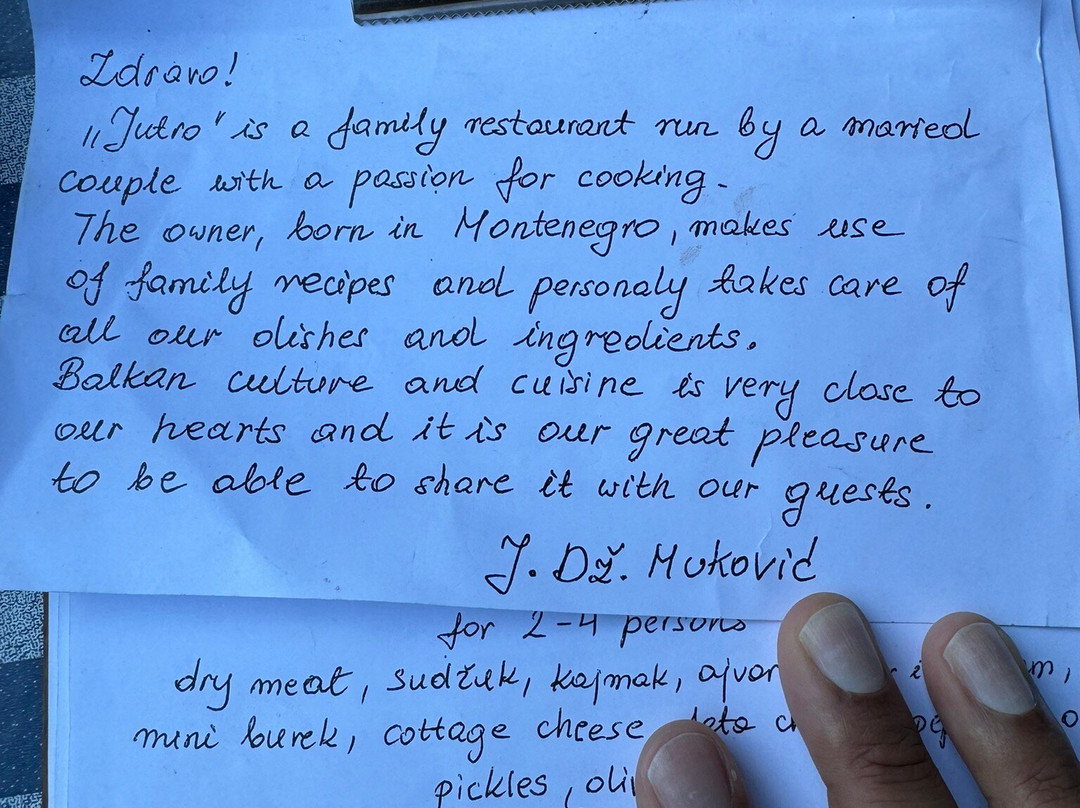 Zdravo!
„Jutro" is a family restaurant run by a married
couple with a passion for cooking.
The owner, born in Montenegro, makes use
of family recipes and personaly takes care of
all our dishes and ingredients.
Balkan culture and cuisine is very close to
our hearts and it is our great pleasure
to be able to share it with our guests.
J. Dž. Muković
for 2-4 persons
dry meat, sudžuk, kajmak, ajvar
mini burek, cottage cheese
pickles,